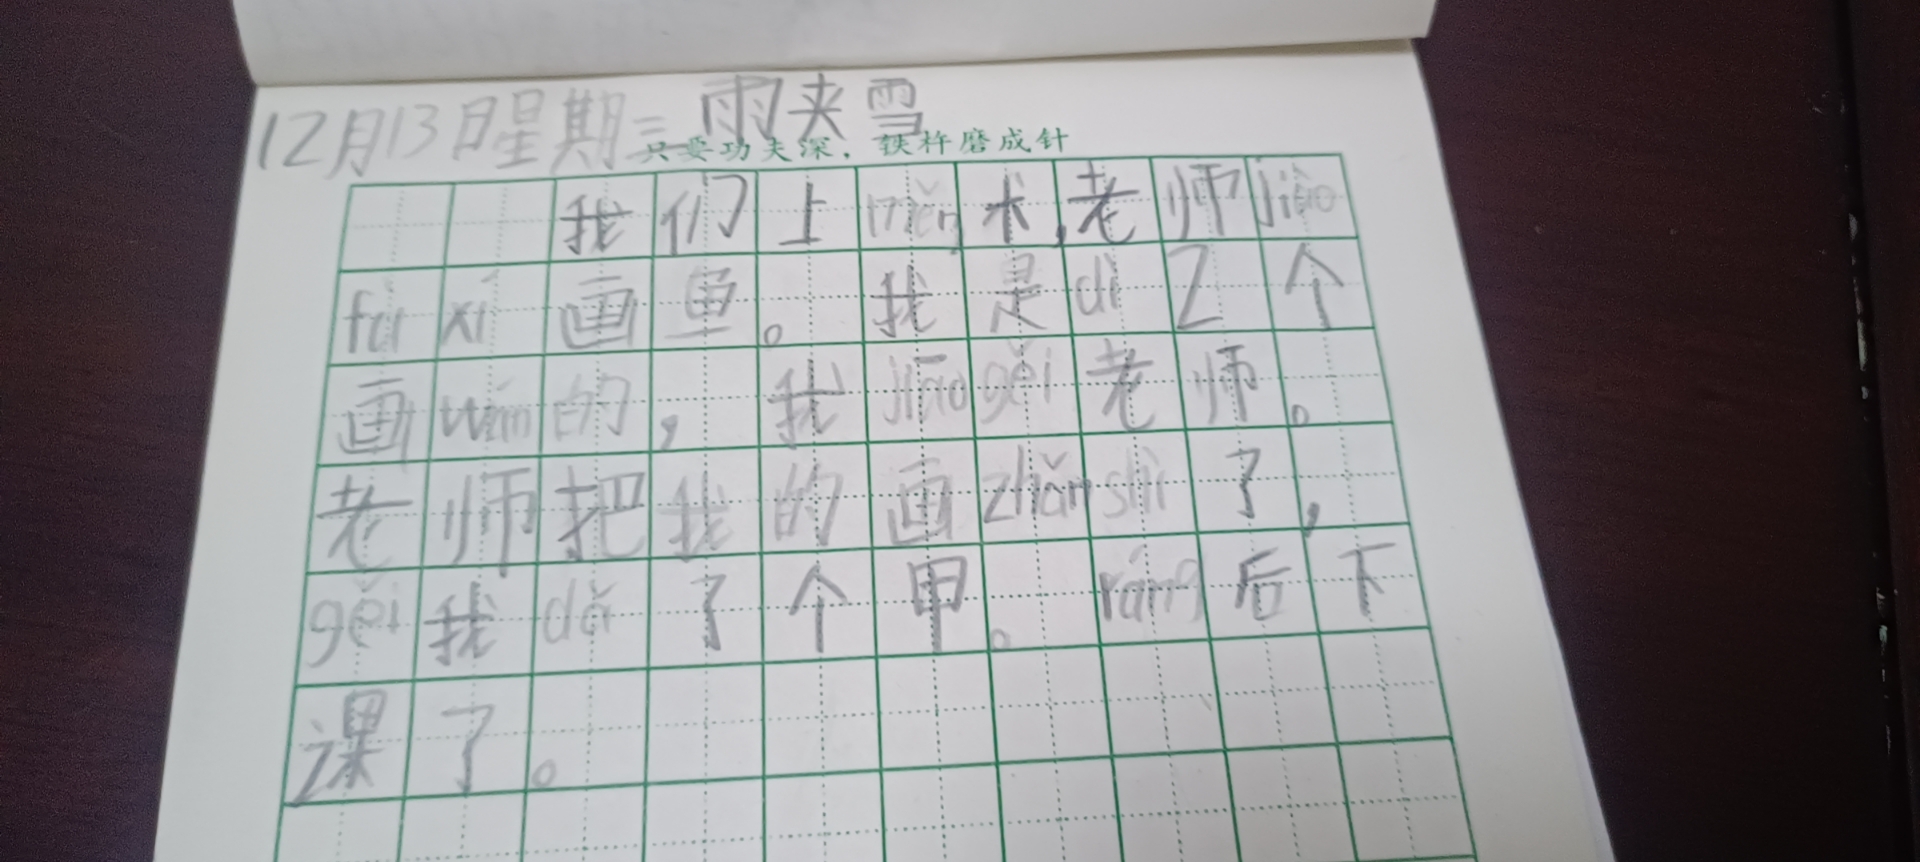 12月13日星期三 雨夹雪
只要功夫深，铁杵磨成针
我们上měi术,老师jiāo
fù xí画鱼。我是dì 2个
画wán的，我jiāo gěi老师。
老师把我的画zhǎn shì了，
gěi我dǎ了个甲。ráng后下
课了。